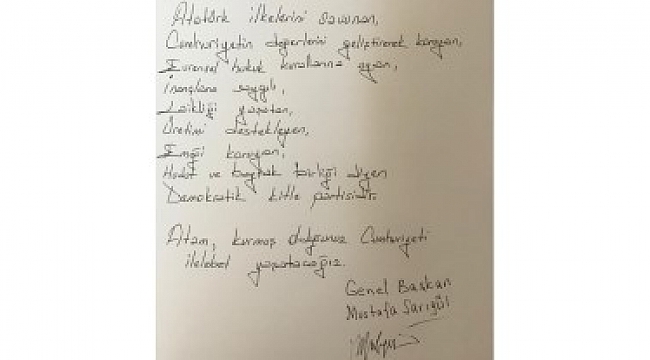 Atatürk ilkelerini savunan,
Cumhuriyetin değerlerini geliştirerek koruyan,
Evrensel hukuk kurallarına uyan,
İnançlara saygılı,
Laikliği yaşatan,
Üretimi destekleyen,
Emeği koruyan,
Hudut ve bayrak birliği diyen
Demokratik kitle partisidir.
Atam, kurmuş olduğunuz Cumhuriyeti
ilelebet yaşatacağız.
Genel Başkan
Mustafa Sarıgül